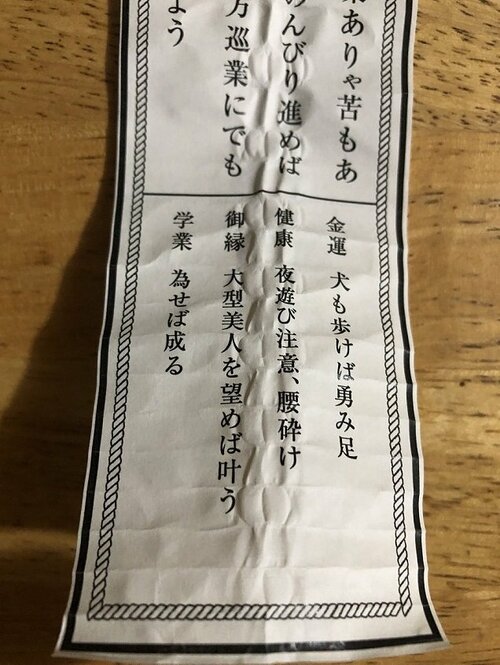 ありゃ苦もあ
のんびり進めば
方巡業にでも
よう
金運 犬も歩けば勇み足
健康 夜遊び注意、腰砕け
御縁 大型美人を望めば叶う
学業 為せば成る